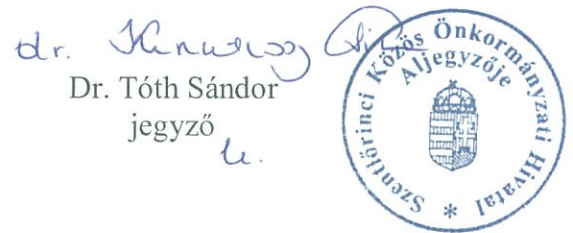 dr.
Dr. Tóth Sándor
jegyző
h.
Szentlőrinci Közös Önkormányzati Hivatal *
Aljegyzője